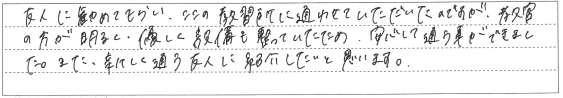 友人に勧めてもらい、ここの教習所に通わせていただいたのですが、教官
の方が明るく、優しく設備も整っていたため、安心して通う事ができまし
た。また、新しく通う友人に紹介したいと思います。